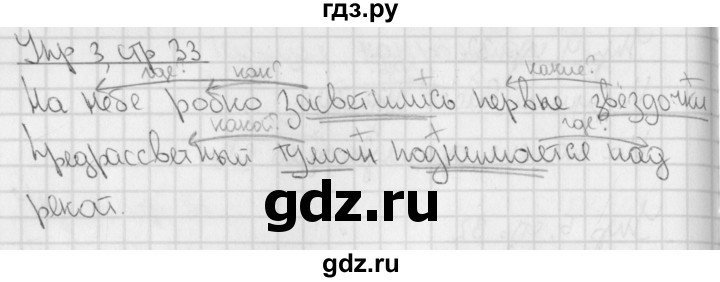 гдз.ру
Упр 3 стр 33
где? как? какие?
На небе робко засветились первые звёздочки
какой? где?
Предрассветный туман поднимается над
рекой.
gdz.ru
gdz.ru